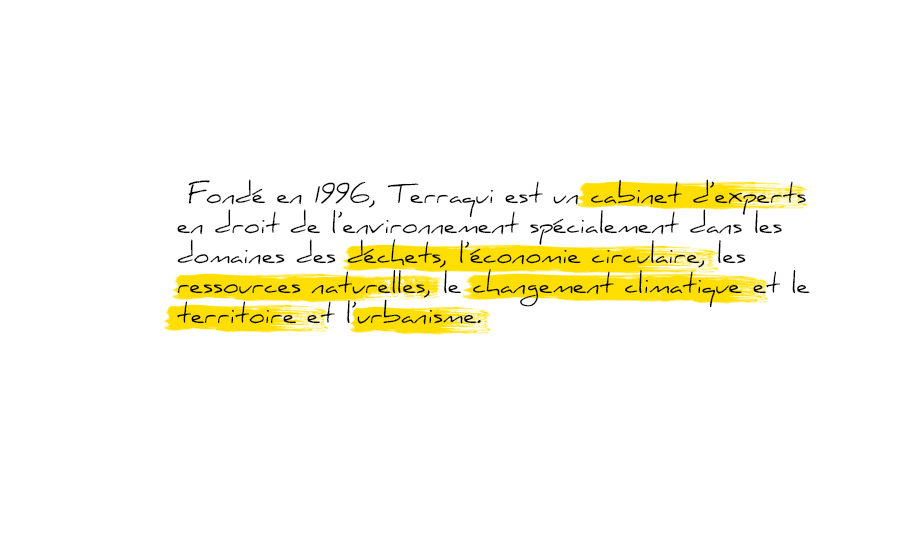 Fondé en 1996, Terraqui est un cabinet d'experts
en droit de l'environnement spécialement dans les
domaines des déchets, l'économie circulaire, les
ressources naturelles, le changement climatique et le
territoire et l'urbanisme.